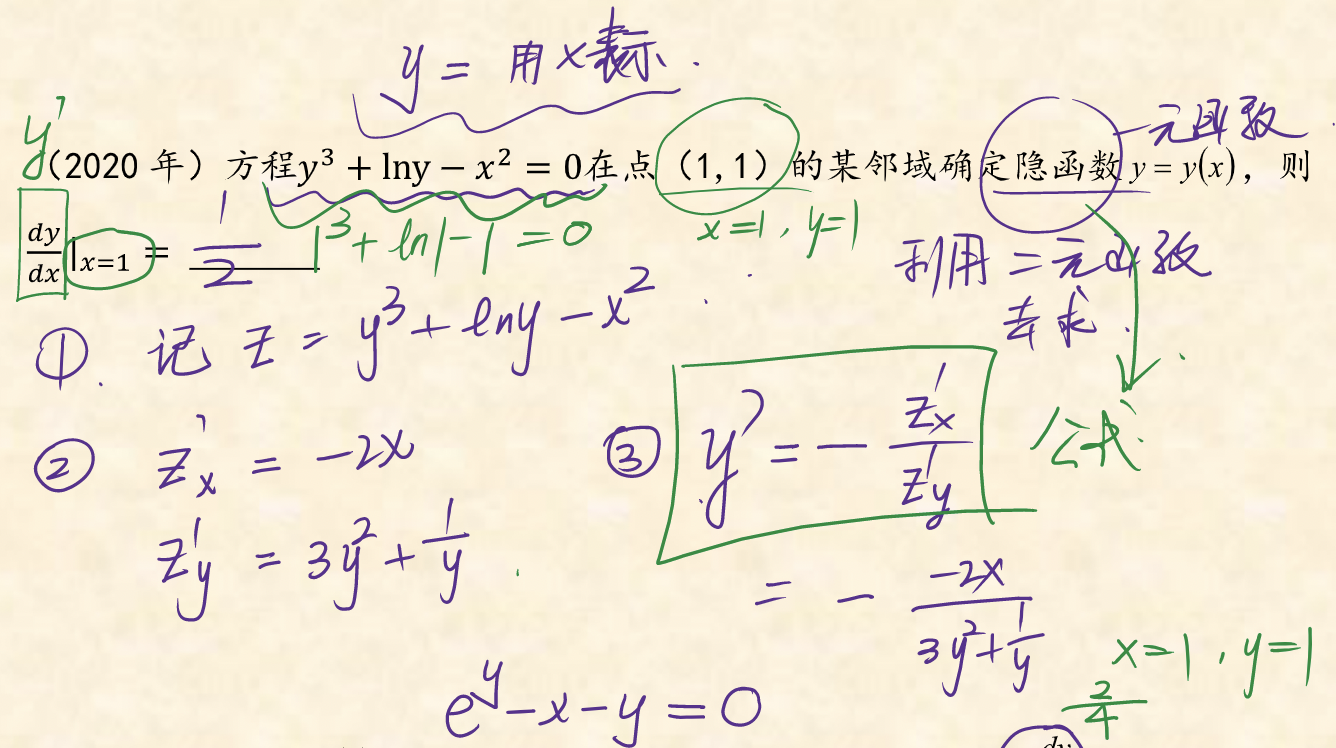 y = 用x表示.
y'
一元函数
(2020 年）方程y³ + lny − x² = 0在点（1, 1）的某邻域确定隐函数 y = y(x)，则
dy/dx|x=1 = 1/2
1³ + ln1 − 1 = 0
x=1, y=1
利用二元函数
去求.
① 记 z = y³ + lny − x²
公式
② z'x = −2x
③ y' = − z'x/z'y
z'y = 3y² + 1/y
= − −2x/(3y² + 1/y)
x=1, y=1
2/4
e^y − x − y = 0
dy